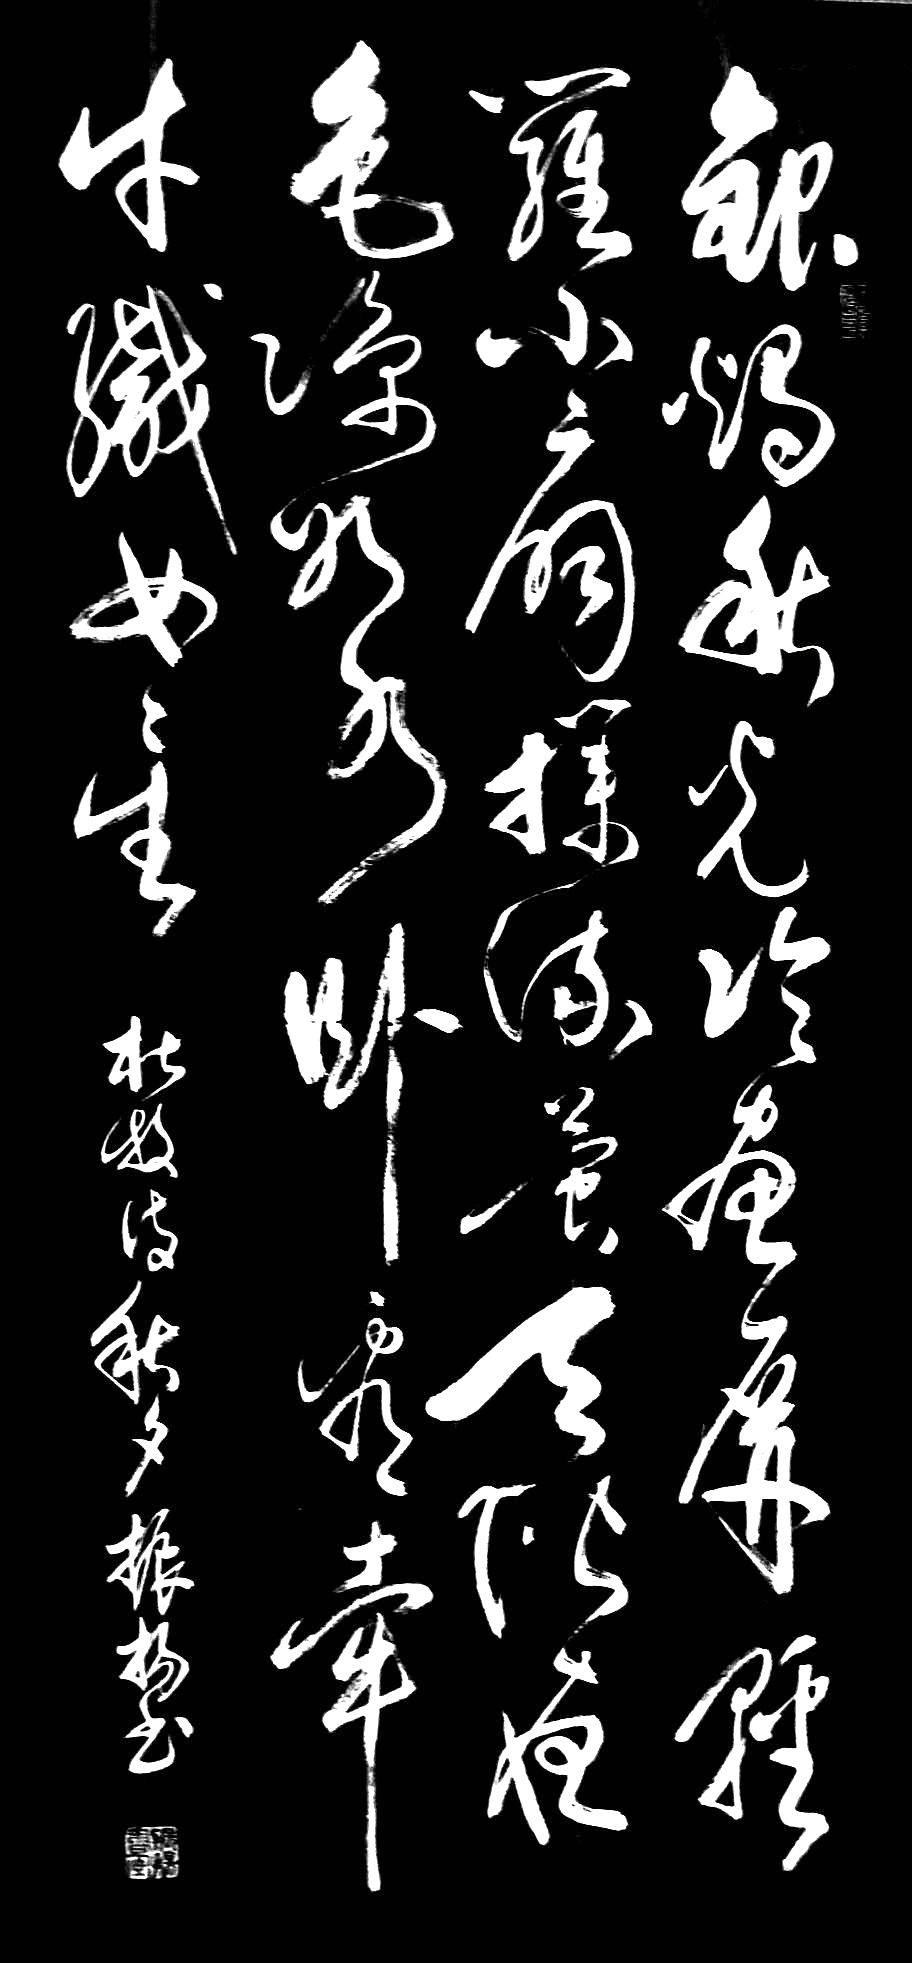 銀燭秋光冷畫屏輕
羅小扇撲流螢天階夜
色涼如水卧看牽
牛織女星 杜牧詩秋夕 振楊书